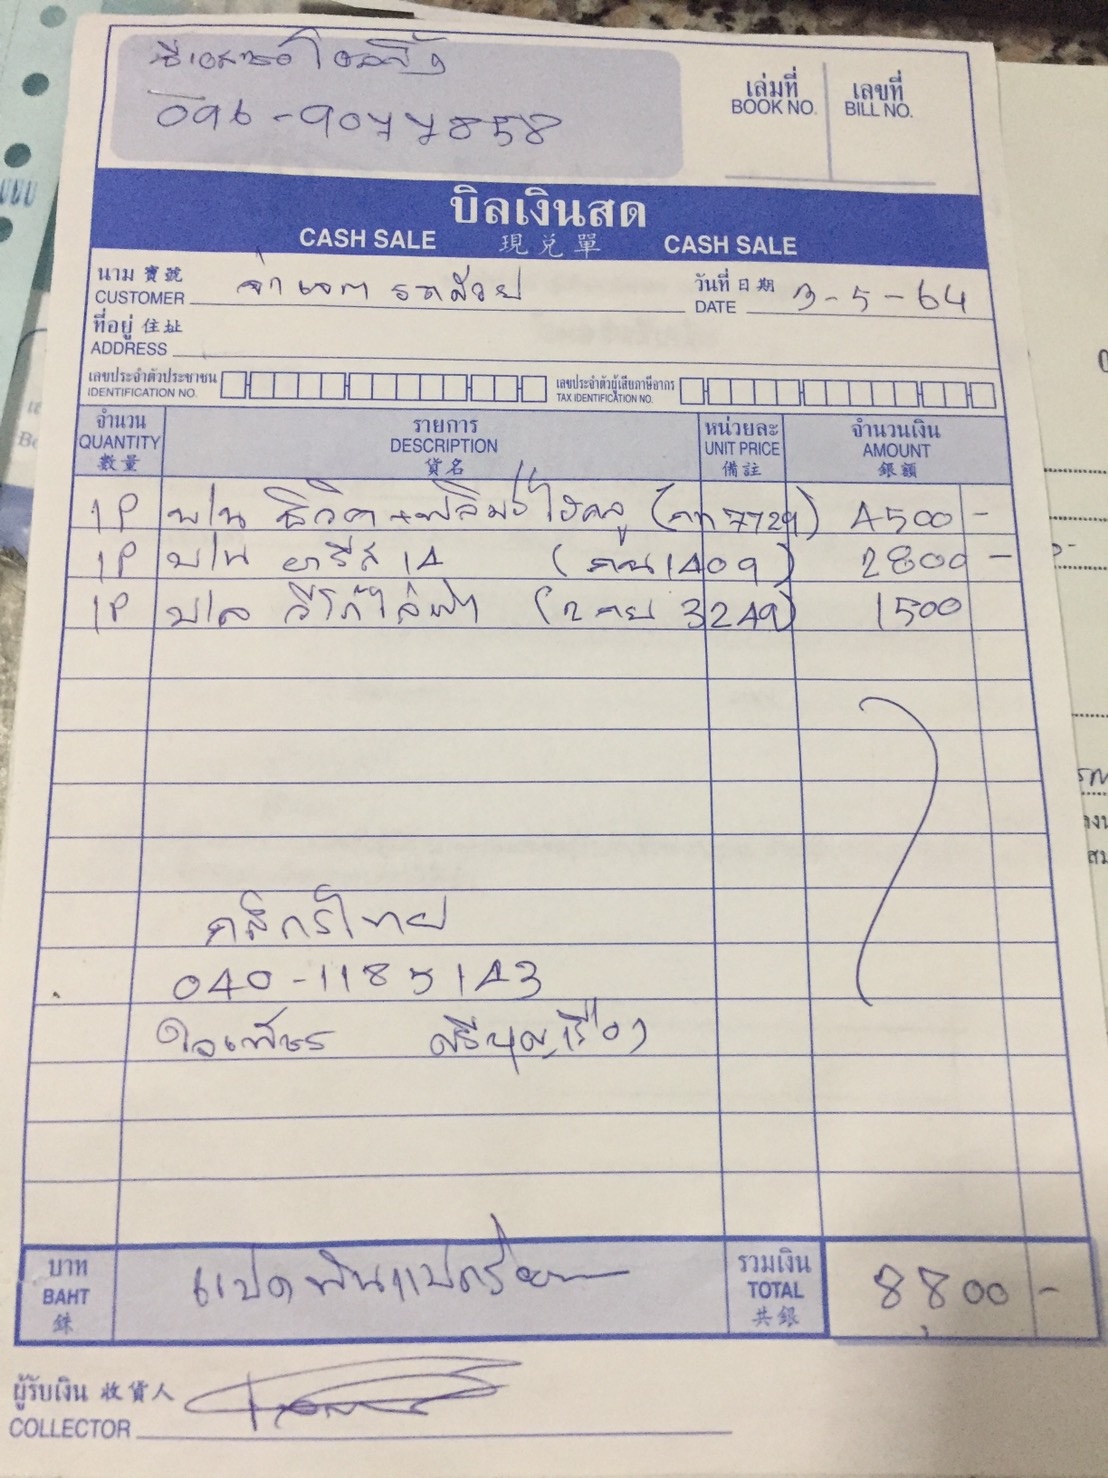 096-9077858
เล่มที่ เลขที่
BOOK NO. BILL NO.
บิลเงินสด
CASH SALE 現兌單 CASH SALE
นาม 寶號 วันที่ 日期
CUSTOMER จ่าเจต รถสวย DATE 3-5-64
ที่อยู่ 住址
ADDRESS
เลขประจำตัวประชาชน เลขประจำตัวผู้เสียภาษีอากร
IDENTIFICATION NO. TAX IDENTIFICATION NO.
จำนวน รายการ หน่วยละ จำนวนเงิน
QUANTITY DESCRIPTION UNIT PRICE AMOUNT
數量 貨名 備註 銀額
1P บ/น ซีวิค+ฟิล์ม (กท7729) 4500 -
1P บ/น ยาริส 14 1409) 2800 -
1P บ/ล วีโก้ไล่ฝ้า 3249) 1500
กสิกรไทย
040-1185143
ใจเพ็ชร ศรีบุญเรือง
บาท แปดพันแปดร้อย รวมเงิน
BAHT TOTAL 8800 -
銖 共銀
ผู้รับเงิน 收貨人
COLLECTOR